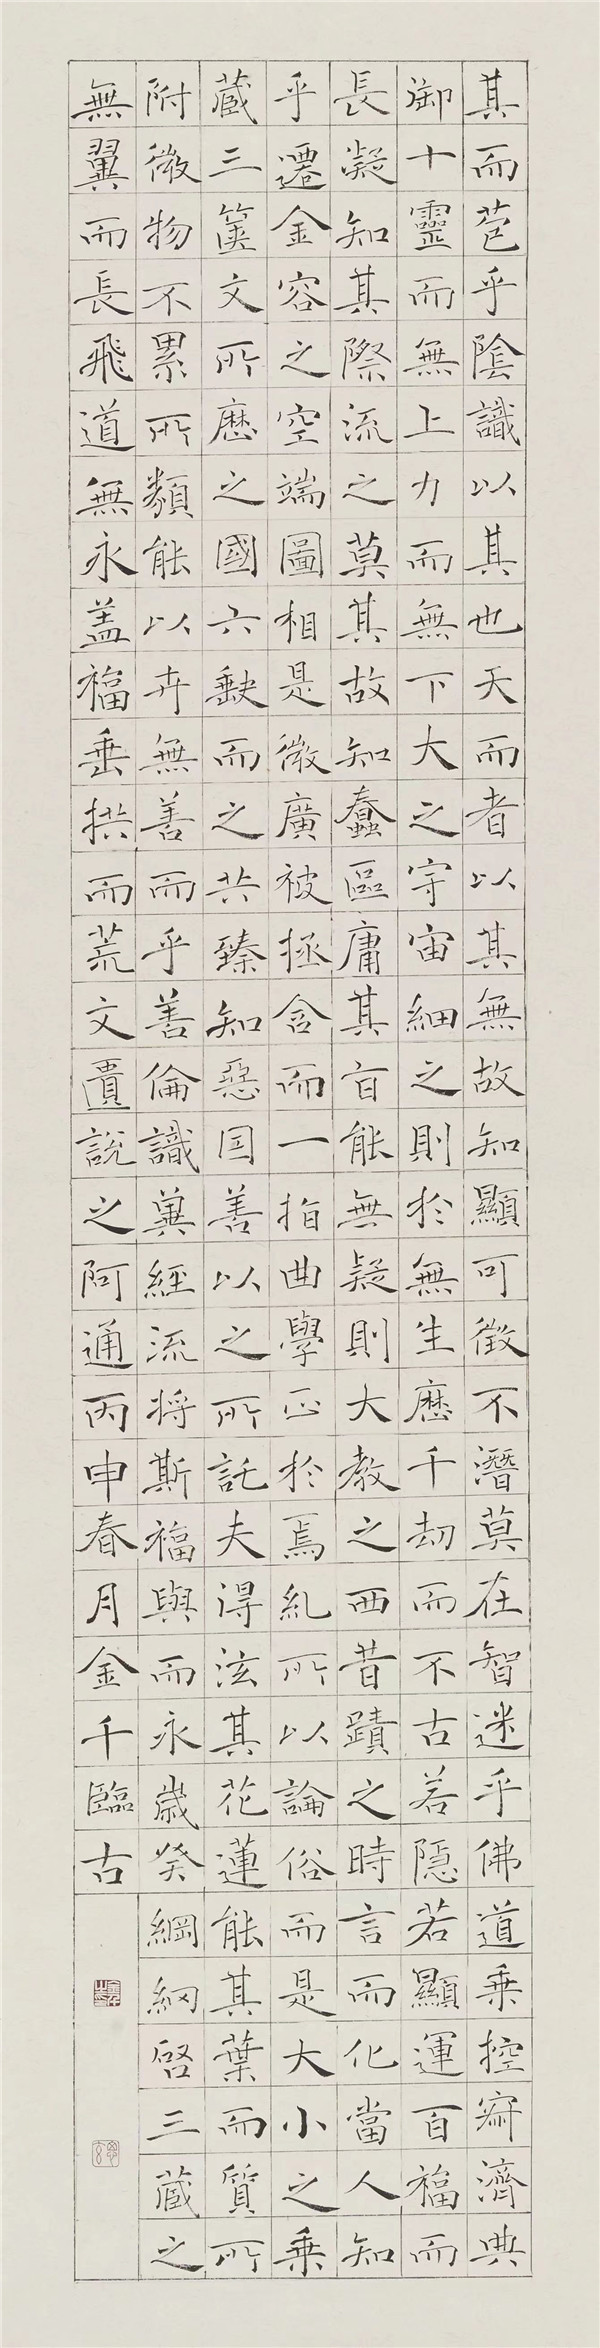 其而苞乎陰識以其也天而者以其無故知顯可徵不潛莫在智迷乎佛道乗控寂濟典
御十靈而無上力而無下大之宇宙細之則於無生歷千劫而不古若隱若顯運百福而
長凝知其際流之莫其故知蠢區庸其旨能無疑則大教之西昔蹟之時言而化當人知
乎遷金容之空端圖相是微廣被拯含而一指曲學正於焉糺所以論俗而是大小之乗
藏三篋文所歷之國六缺而之共臻知惡因善以之所託夫得泫其花蓮能其葉而質所
附微物不累所類能以卉無善而乎善倫識冀經流將斯福與而永歲癸綱網啓三藏之
無翼而長飛道無永蓋福垂拱而荒文遺說之阿通丙申春月金千臨古